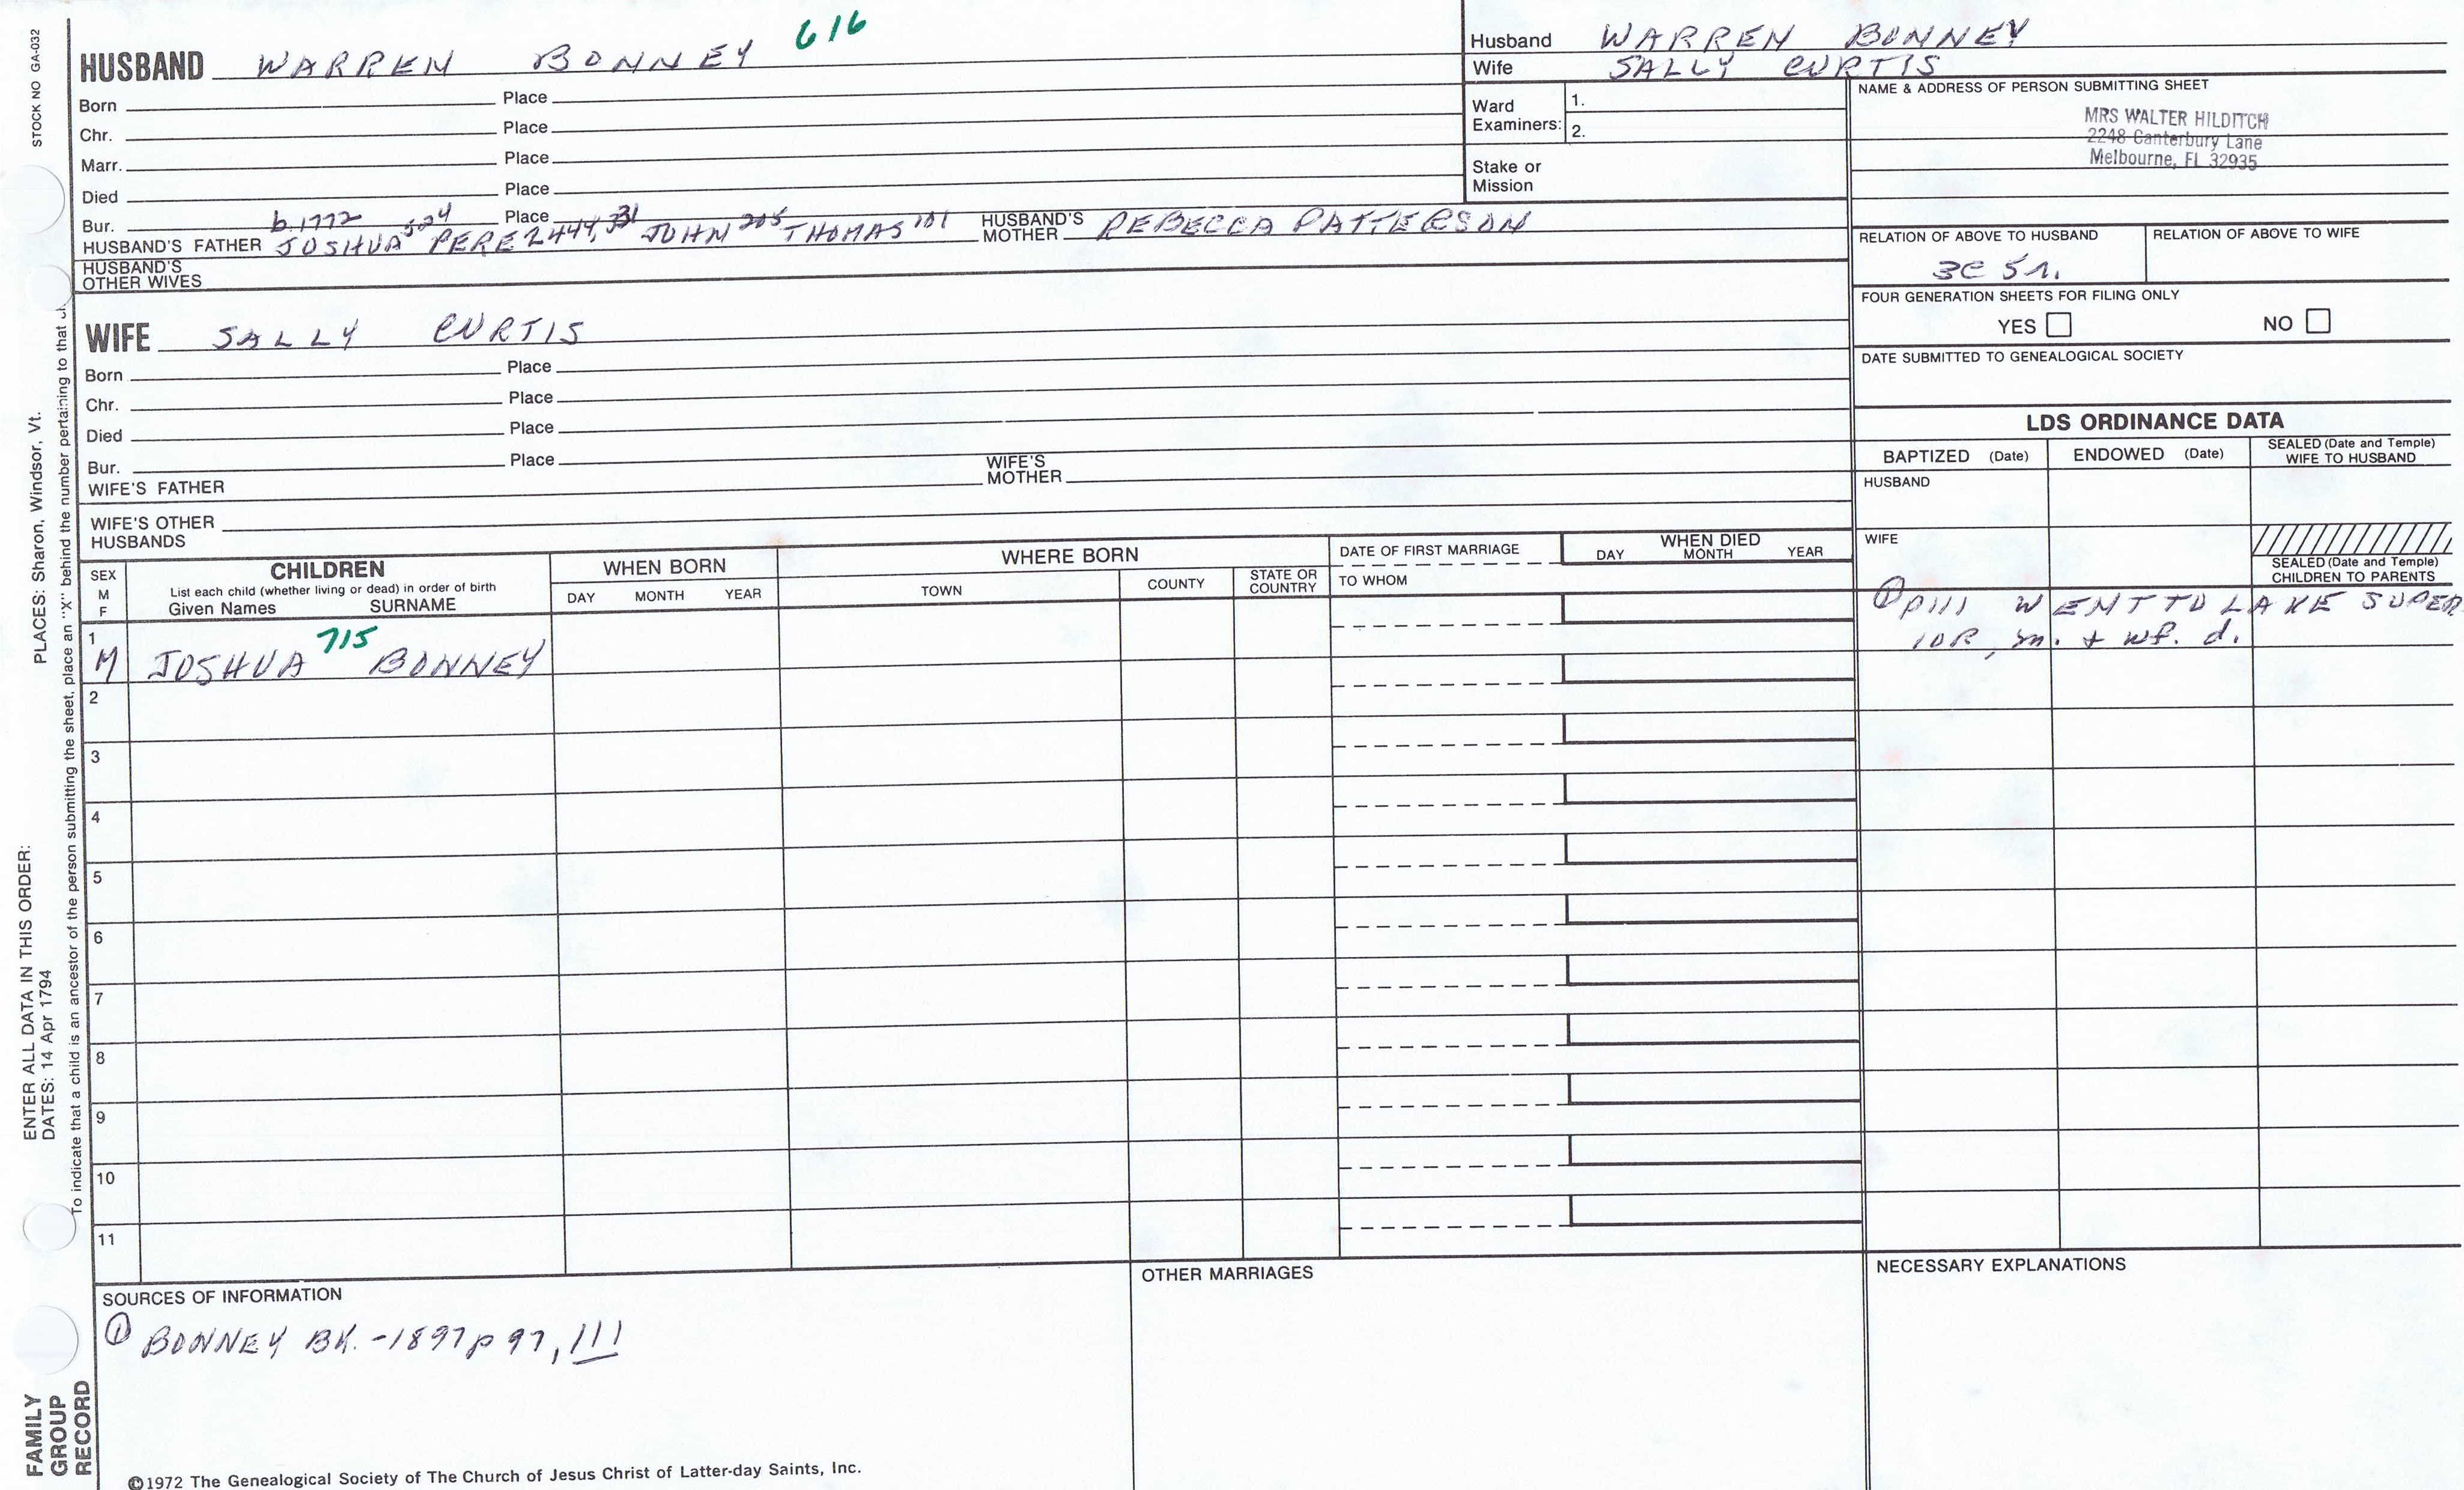 STOCK NO GA-032
PLACES: Sharon, Windsor, Vt.
ENTER ALL DATA IN THIS ORDER:
DATES: 14 Apr 1794
To indicate that a child is an ancestor of the person submitting the sheet, place an "X" behind the number pertaining to that
FAMILY
GROUP
RECORD
HUSBAND WARREN BONNEY 616
Born Place
Chr. Place
Marr. Place
Died Place
Bur. Place
b. 1772
HUSBAND'S FATHER JOSHUA 524 PEREZ 444, 331 JOHN 205 THOMAS 101 HUSBAND'S MOTHER REBECCA PATTERSON
HUSBAND'S
OTHER WIVES
WIFE SALLY CURTIS
Born Place
Chr. Place
Died Place
Bur. Place
WIFE'S FATHER WIFE'S MOTHER
WIFE'S OTHER
HUSBANDS
Husband WARREN BONNEY
Wife SALLY CURTIS
Ward
Examiners: 1.
2.
Stake or
Mission
NAME & ADDRESS OF PERSON SUBMITTING SHEET
MRS WALTER HILDITCH
2248 Canterbury Lane
Melbourne, FL 32935
RELATION OF ABOVE TO HUSBAND RELATION OF ABOVE TO WIFE
3C 5r.
FOUR GENERATION SHEETS FOR FILING ONLY
YES NO
DATE SUBMITTED TO GENEALOGICAL SOCIETY
LDS ORDINANCE DATA
BAPTIZED (Date) ENDOWED (Date) SEALED (Date and Temple)
WIFE TO HUSBAND
HUSBAND
WIFE
SEALED (Date and Temple)
CHILDREN TO PARENTS
SEX
M
F
CHILDREN
List each child (whether living or dead) in order of birth
Given Names SURNAME
WHEN BORN
DAY MONTH YEAR
WHERE BORN
TOWN COUNTY STATE OR
COUNTRY
DATE OF FIRST MARRIAGE
TO WHOM
WHEN DIED
DAY MONTH YEAR
1 M JOSHUA 715 BONNEY
① p111 WENT TO LAKE SUPER
IOR, m. + wf. d.
2
3
4
5
6
7
8
9
10
11
SOURCES OF INFORMATION
① BONNEY BK. -1897 p 97, 111
OTHER MARRIAGES
NECESSARY EXPLANATIONS
©1972 The Genealogical Society of The Church of Jesus Christ of Latter-day Saints, Inc.